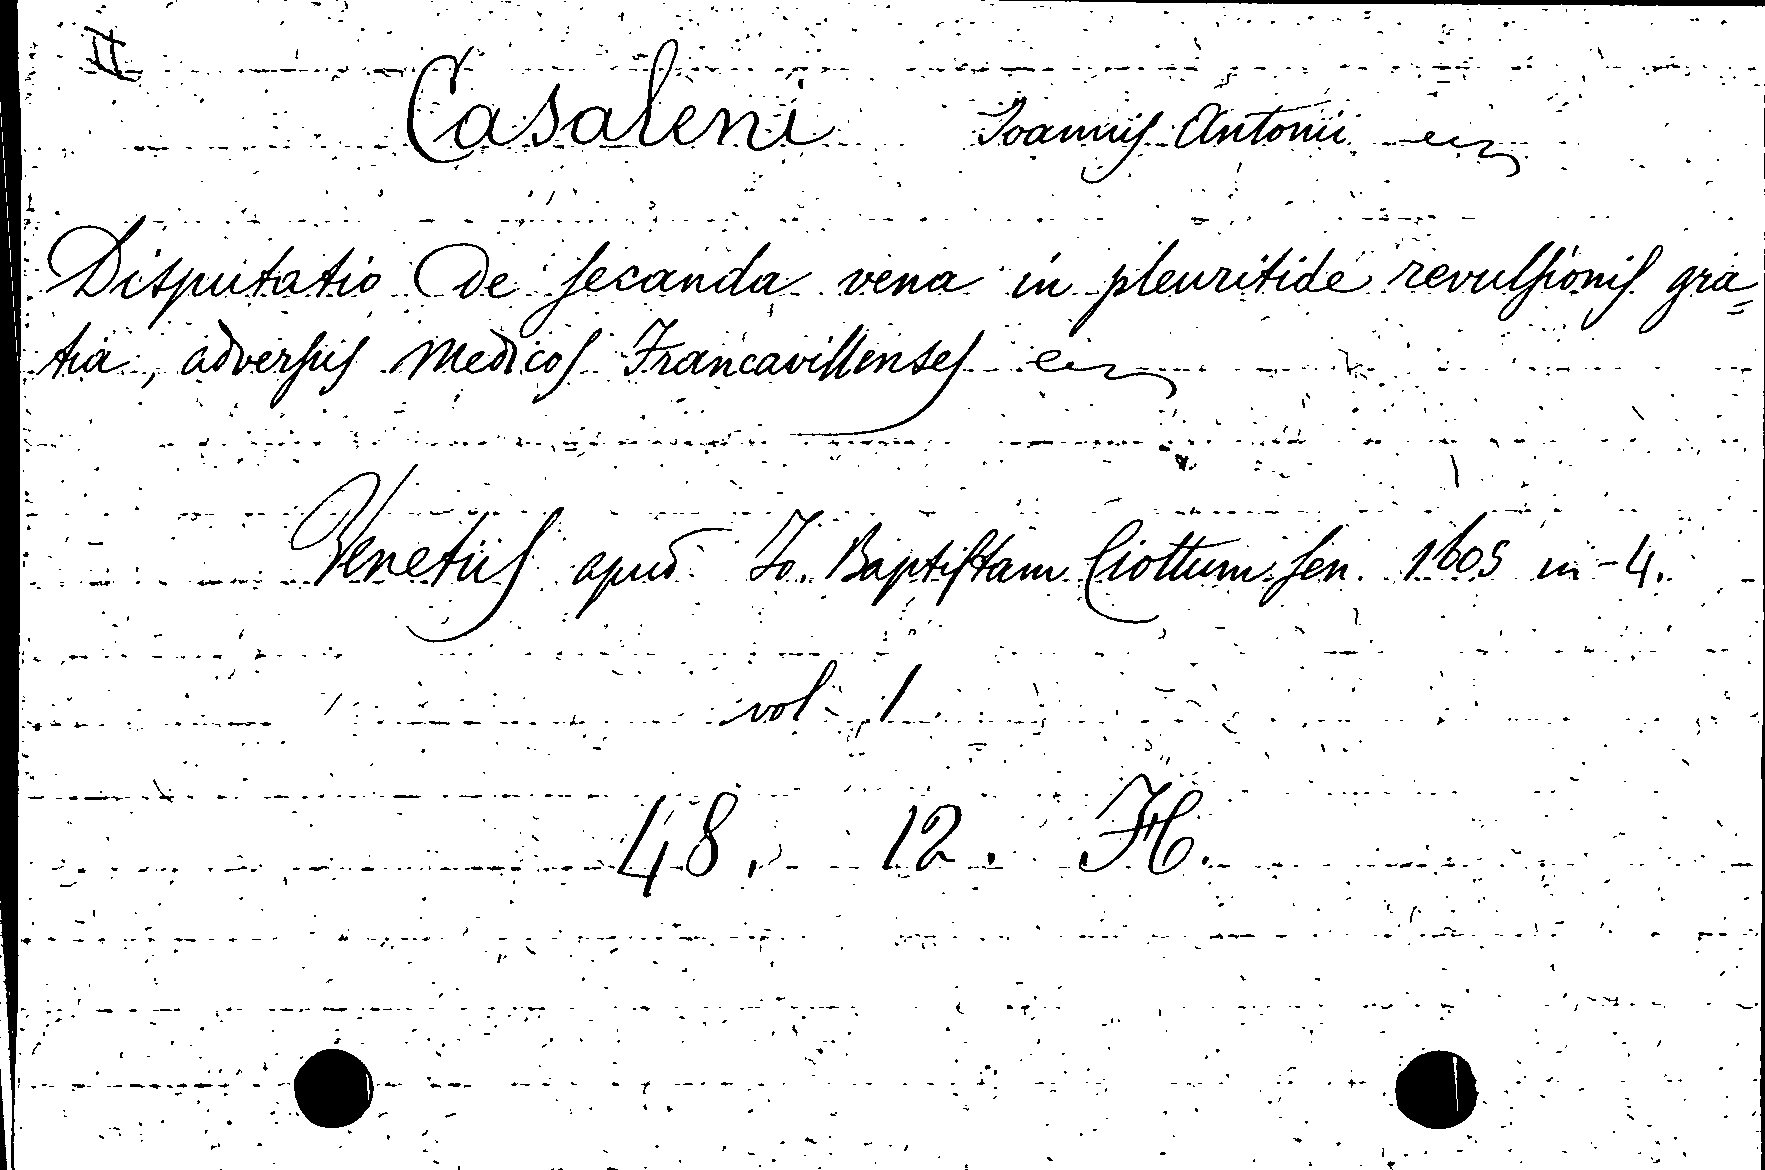 II
Casaleni Joannis Antonii
Disputatio De secanda vena in pleuritide revulsionis gra=
tia, adversus Medicos Francavillenses
Venetiis apud Jo. Baptistam Ciottum sen. 1605 in-4.
vol 1
48. 12. H.